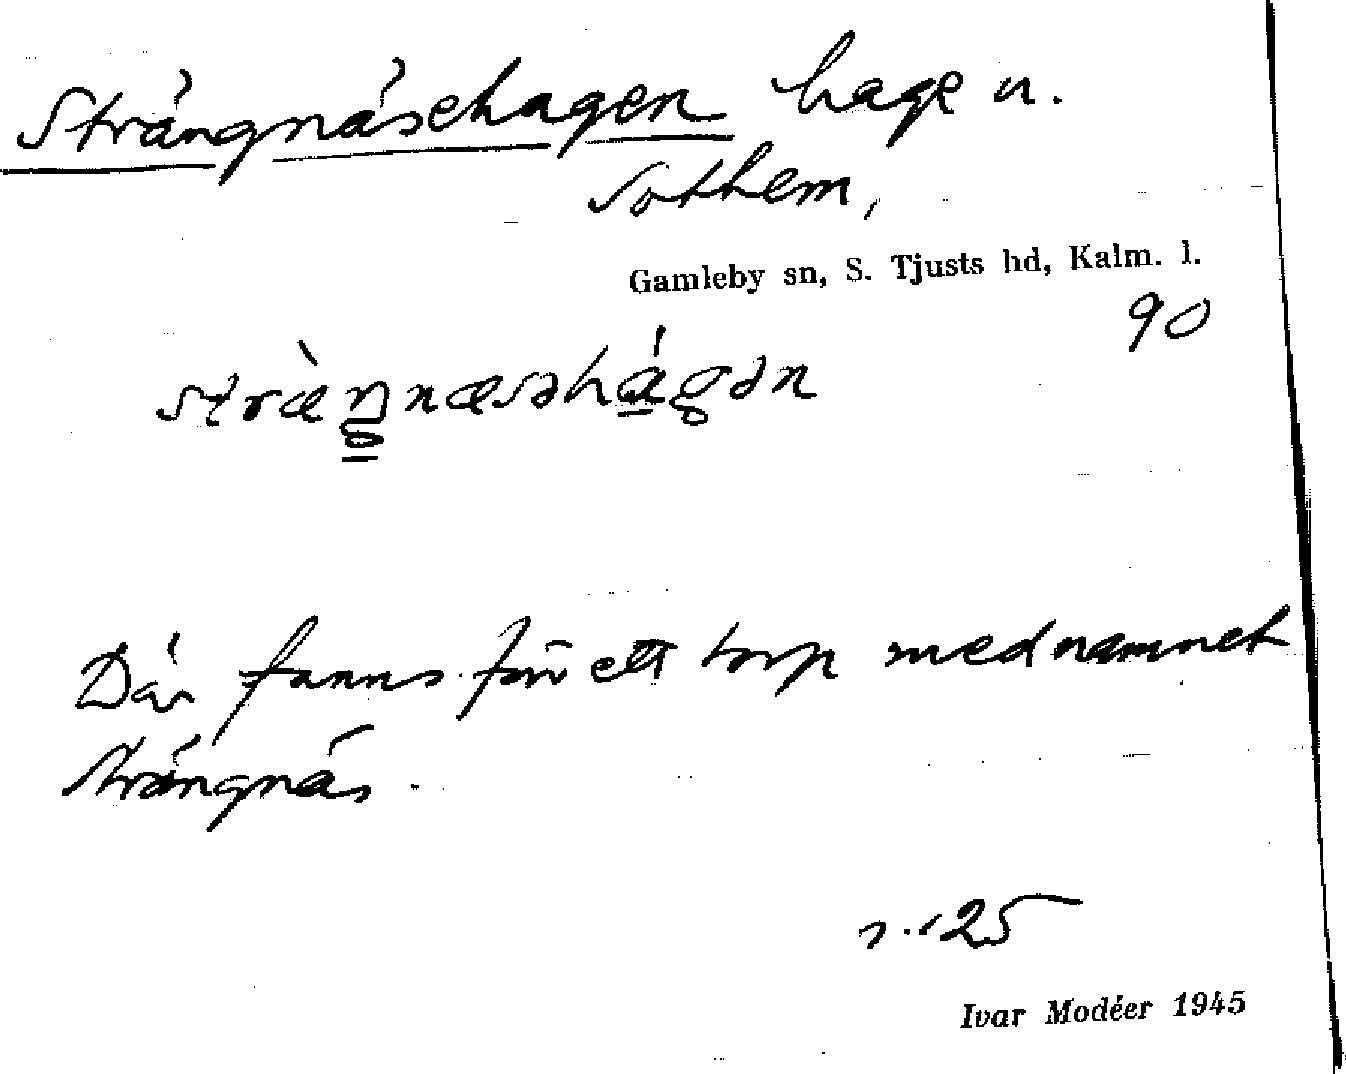 Strängnäsehagen hage u.
Sothem,
Gamleby sn, S. Tjusts hd, Kalm. l.
90
stræ̀ŋnæsəhágən
Där fanns förr ett torp med namnet
Strängnäs.
s. 125
Ivar Modéer 1945